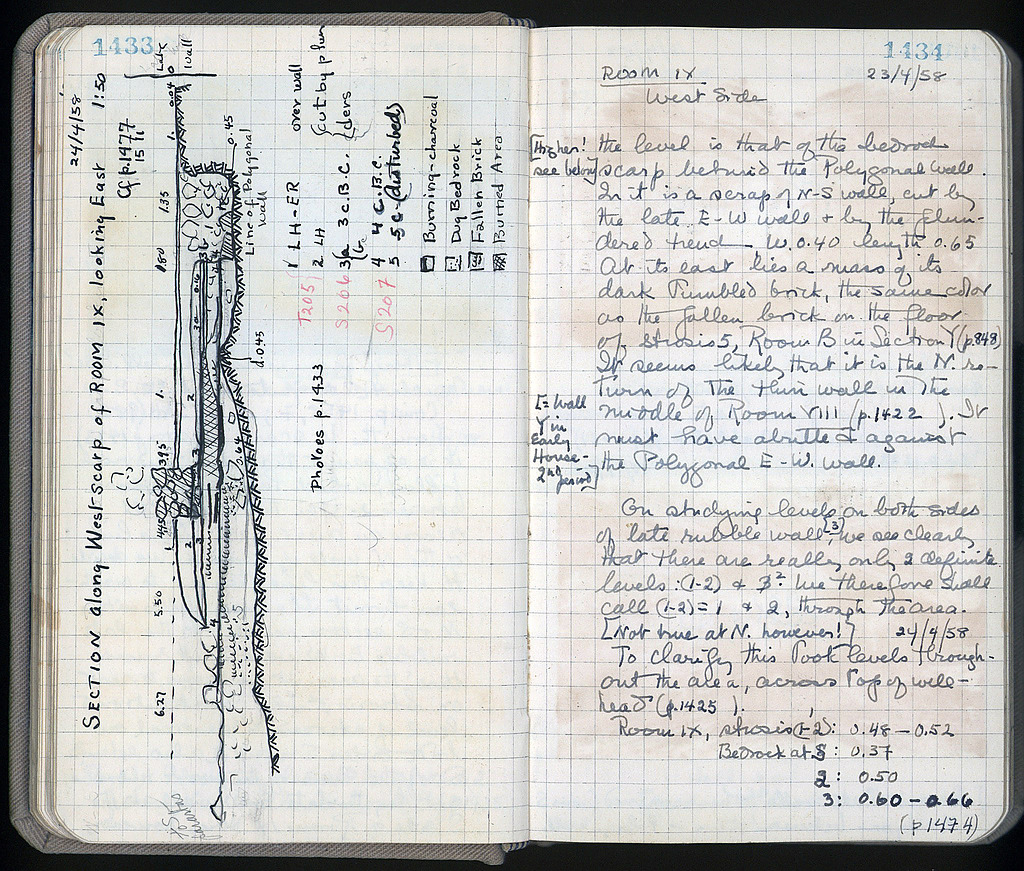 1433
24/4/58
SECTION along West scarp of ROOM IX, looking East 1:50
Cf p.1477
15/II
Late
Wall
0
0.04
1.
1.35
0.80
1.
3.95
4.45
5.50
6.27
0.45
Line of Polygonal
Wall
d.0.45
0.64
T205 1 LH-ER over wall
2 LH
S206 3a 3 c.B.C.
4 4 c.B.C.
S207 5 5 c. (disturbed)
Burning-charcoal
Dug Bedrock
Fallen Brick
Burned Area
Photoes p.1433
1434
ROOM IX 23/4/58
West Side
[Higher!
see below]
the level is that of the bedrock
scarp behind the Polygonal wall.
In it is a scrap of N-S wall, cut by
the late E-W wall + by the plun-
dered trench - W. 0.40 length 0.65
At its east lies a mass of its
dark tumbled brick, the same color
as the fallen brick on the floor
of strosis 5, Room B in Section Y (p.848)
It seems likely that it is the N. re-
turn of the thin wall in the
middle of Room VIII (p.1422 ). It
must have abutted against
the Polygonal E-W. wall.
[= Wall
Y in
Early
House-
2nd
period]
On studying levels on both sides
of late rubble wall, [3] we see clearly
that there are really only 2 definite
levels: (1-2) + 3². We therefore shall
call (1-2) = 1 + 2, through the area.
[Not true at N. however!] 24/4/58
To clarify this Took levels through-
out the area, across Top of well-
head (p.1425 ).
Room IX, strosis (1-2): 0.48 - 0.52
Bedrock at S: 0.37
2: 0.50
3: 0.60 - 0.66
(p.1474)